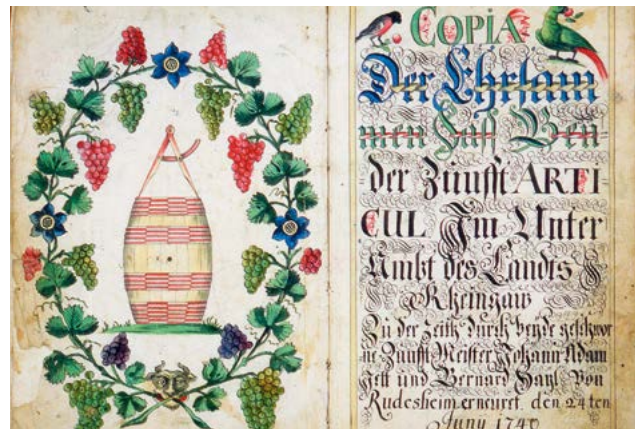 COPIA
Der Ehrsam
men Faß Ben-
der Zunfft ARTI
CUL Im Unter
Ambt des Landts
Rheingaus
Zu der Zeith durch beyde geschwor
ne Zunfft Meister Johann Adam
und Bernard Von
Rudesheim erneuret den 24 ten
Juny 1740